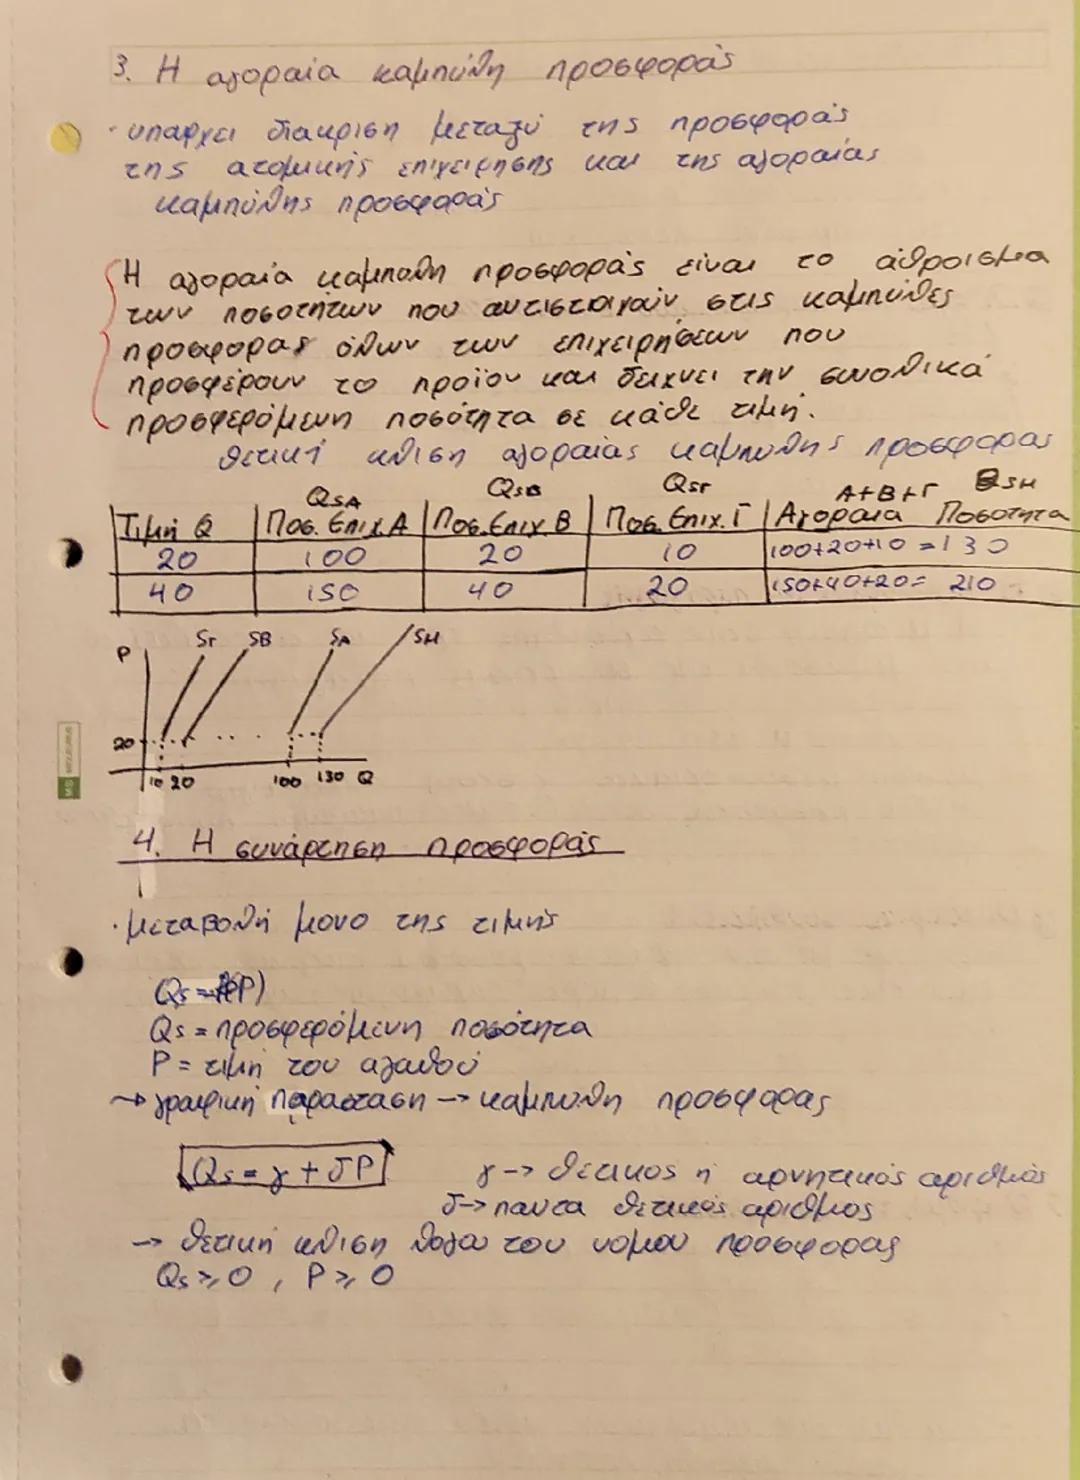 3. Η αγοραία καμπύλη προσφοράς
· υπαρχει διακριση μεταξύ της προσφοράς
της ατομικής επιχειρησης και της αγοραίας
καμπύλης προσφοράς
Η αγοραία καμπυλη προσφοράς είναι το άθροισμα
των ποσοτήτων που αντιστοιχούν στις καμπύλες
προσφορας όλων των επιχειρήσεων που
προσφέρουν το προϊον και δειχνει την συνολικά
προσφερόμενη ποσότητα σε κάθε τιμή.
θετική κλιση αγοραίας καμπυλης προσφορας
QSA QSB QSΓ A+B+Γ QSM
Τιμή Q Ποσ. Επιχ. Α Ποσ. Επιχ. Β Ποσ. Επιχ. Γ Αγοραια Ποσοτητα
20 100 20 10 100+20+10 = 130
40 150 40 20 150+40+20= 210
P SΓ SB SA SM
20
10 20 100 130 Q
4. Η συνάρτηση προσφοράς
· μεταβολή μονο της τιμής
Qs = f(P)
Qs = προσφερόμενη ποσότητα
P = τιμή του αγαθού
→ γραφική παράσταση → καμπυλη προσφορας
Qs = γ + δP γ → θετικος ή αρνητικός αριθμός
δ → παντα θετικός αριθμος
→ θετικη κλιση λογω του νομου προσφορας
Qs ≥ 0 , P ≥ 0